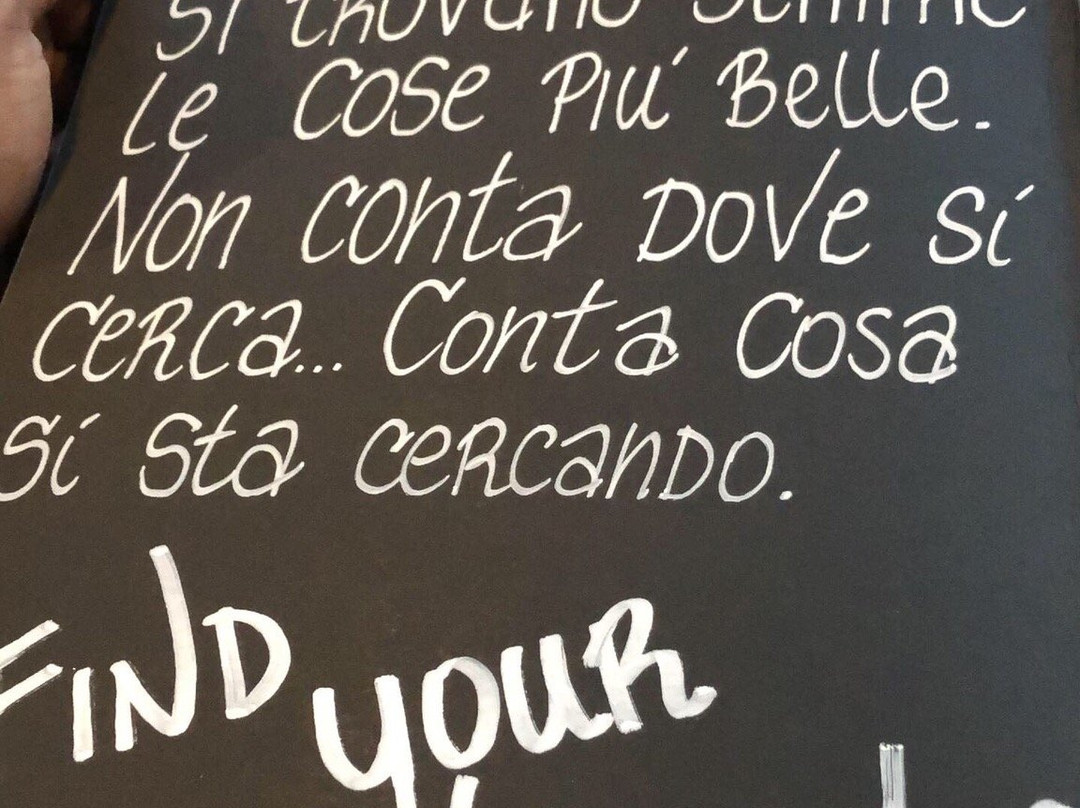 si trovano sempre
le cose più belle.
Non conta dove si
cerca... Conta cosa
si sta cercando.
FIND
YOUR